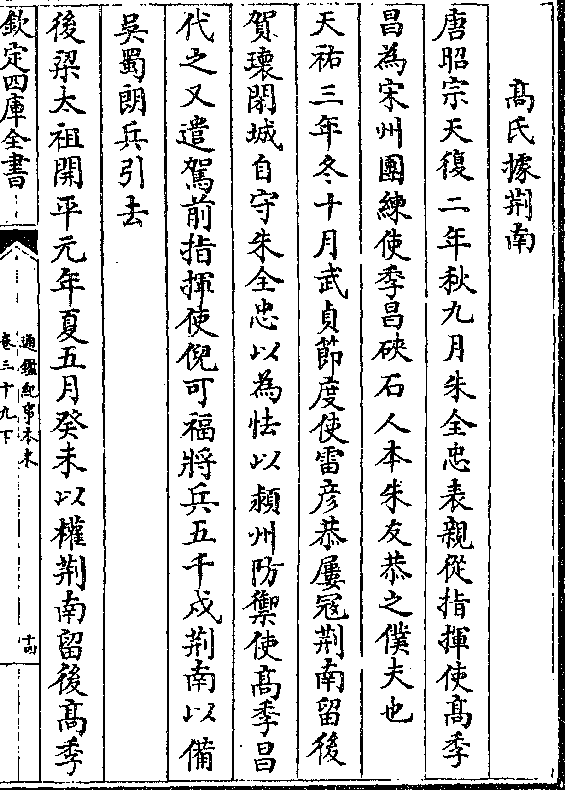 髙氏據荆南
唐昭宗天復二年秋九月朱全忠表親從指揮使髙季
昌為宋州團練使季昌硤石人本朱友恭之僕夫也
天祐三年冬十月武貞節度使雷彦恭屢冦荆南留後
賀瓌閉城自守朱全忠以為怯以潁州防禦使髙季昌
代之又遣駕前指揮使倪可福將兵五千戍荆南以備
吳蜀朗兵引去
後梁太祖開平元年夏五月癸未以權荆南留後髙季
欽定四庫全書
通鑑紀事本末
卷三十九下
十四